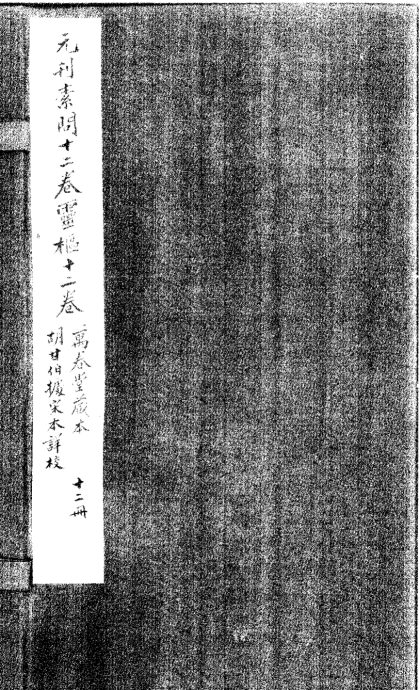 元刊素問十二卷靈樞十二卷
萬卷堂藏本
胡甘伯據宋本詳校
十二冊